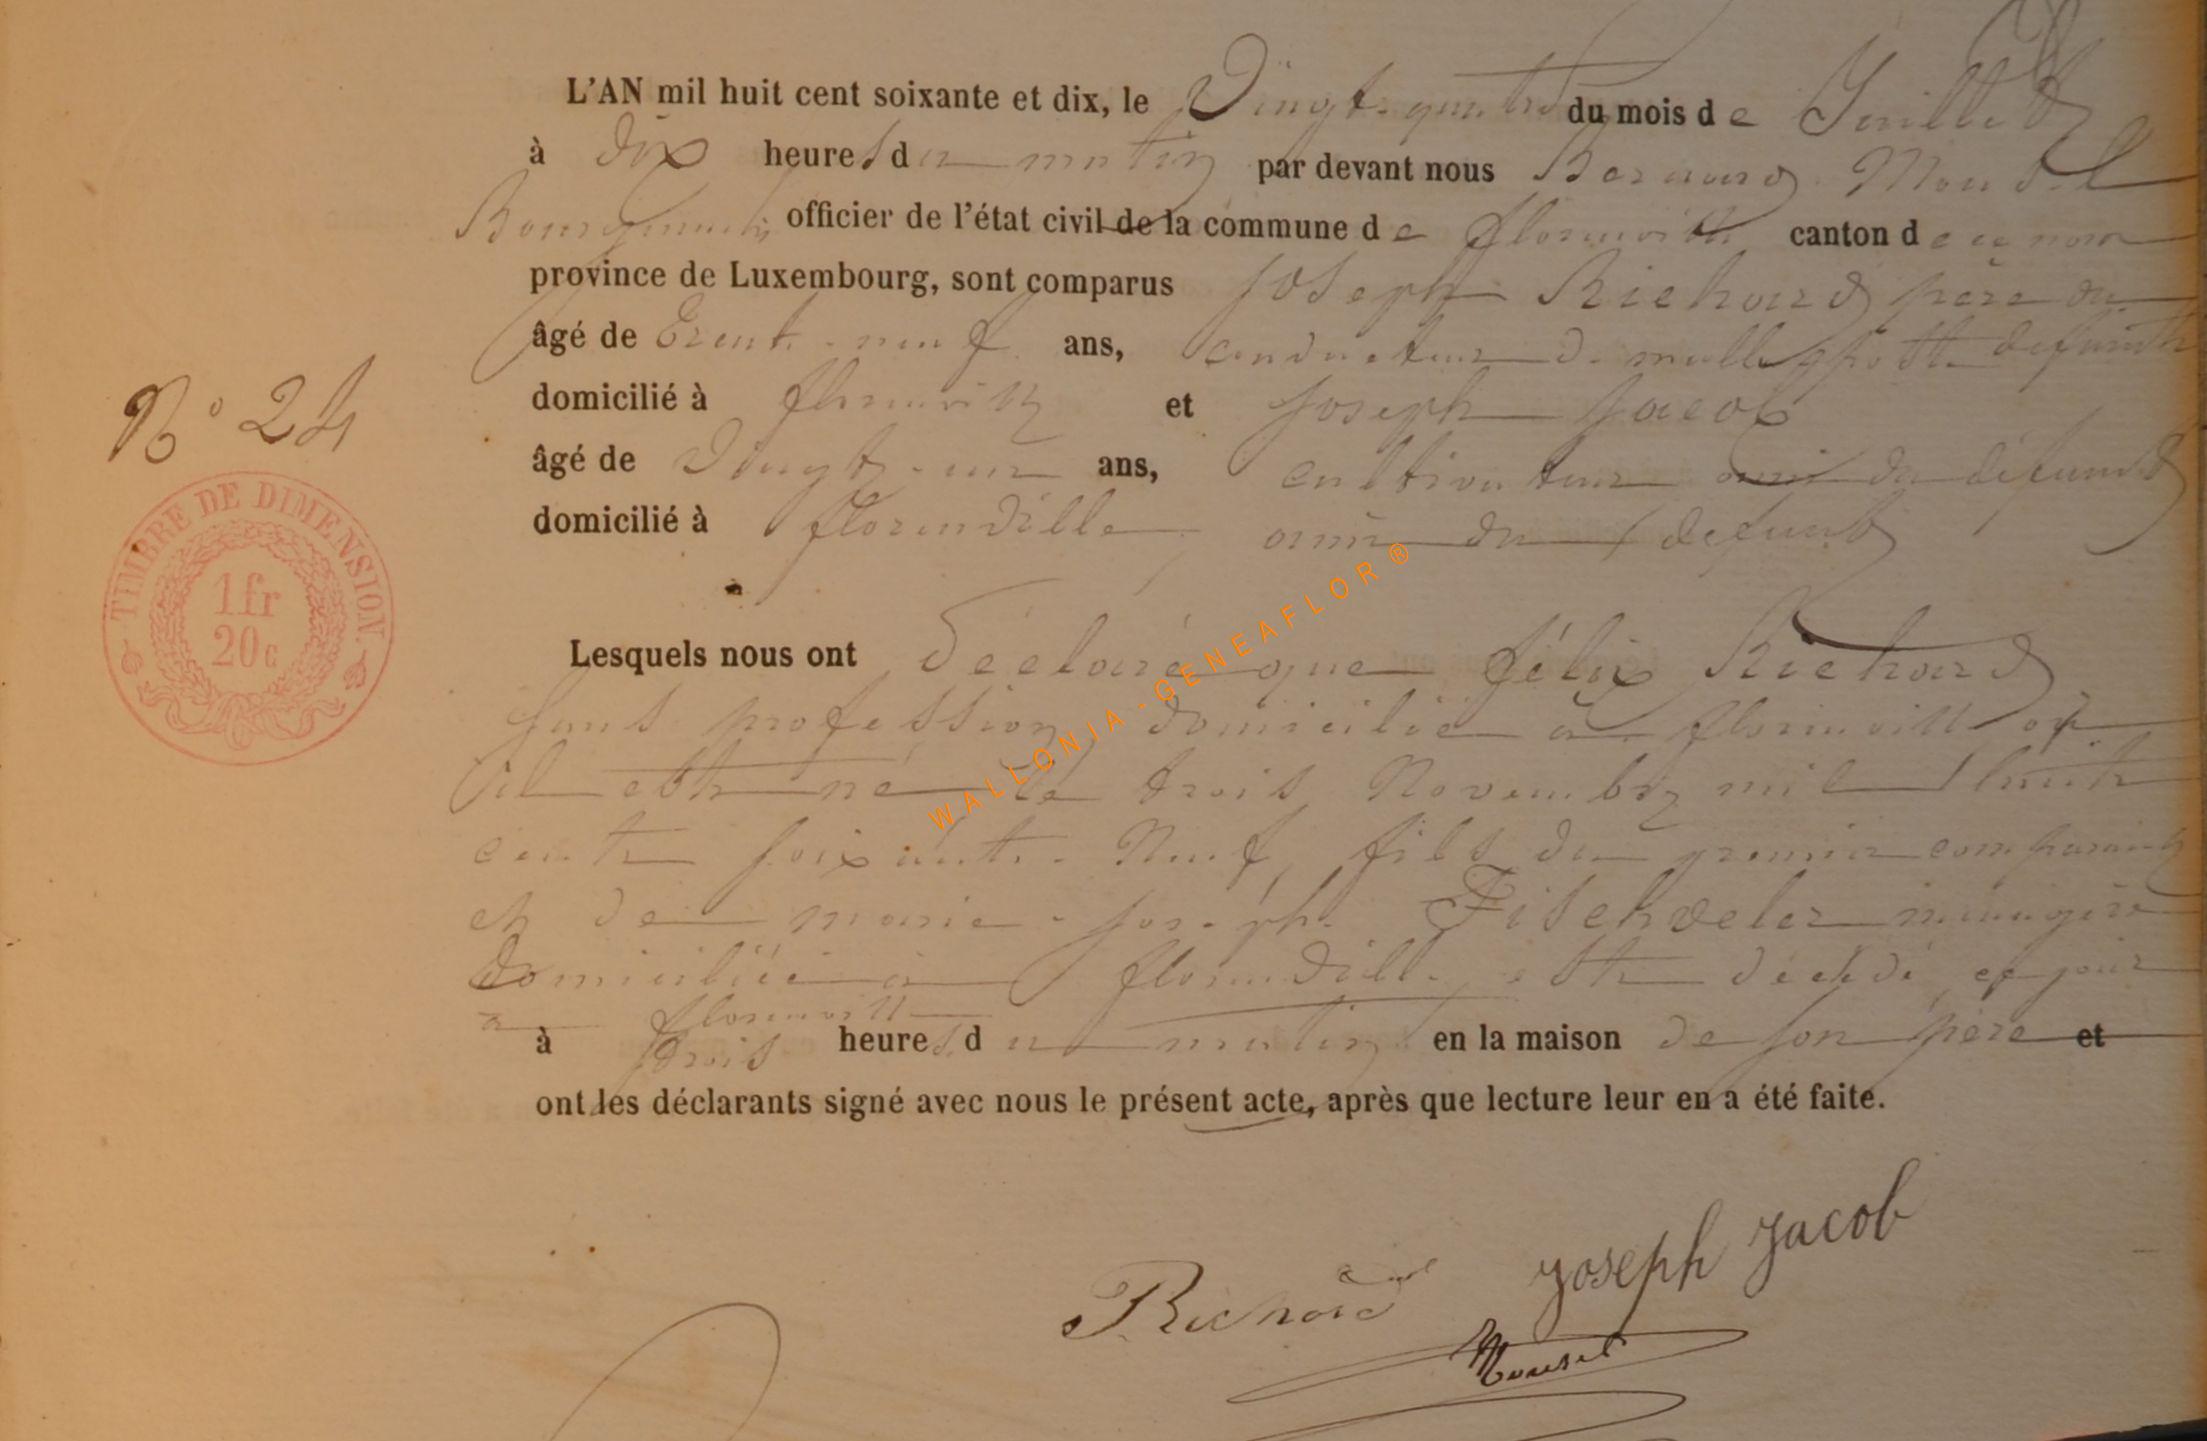 L'AN mil huit cent soixante et dix, le Vingt-quatre du mois de Juillet
à dix heures du matin par devant nous Bernard Mousel
Bourgmestre officier de l'état civil de la commune de florenville canton de ce nom
province de Luxembourg, sont comparus Joseph Richard père du
âgé de Trente-neuf ans, conducteur de malle poste défunt
domicilié à florenville et Joseph Jacob
N° 24
âgé de Vingt-un ans, cultivateur ami du défunt
domicilié à florenville, ami du défunt
TIMBRE DE DIMENSION.
1 fr
20 c
Lesquels nous ont déclaré que félix Richard
sans profession, domicilié à florenville où
il est né le trois Novembre mil huit
cent soixante-Neuf, fils du premier comparant
et de marie-joseph Fischweler ménagère
domiciliée à florenville, est décédé ce jour
à florenville
à trois heures du matin en la maison de son père et
ont les déclarants signé avec nous le présent acte, après que lecture leur en a été faite.
Richard Joseph Jacob
Mousel
WALLONIA-GENEAFLOR®